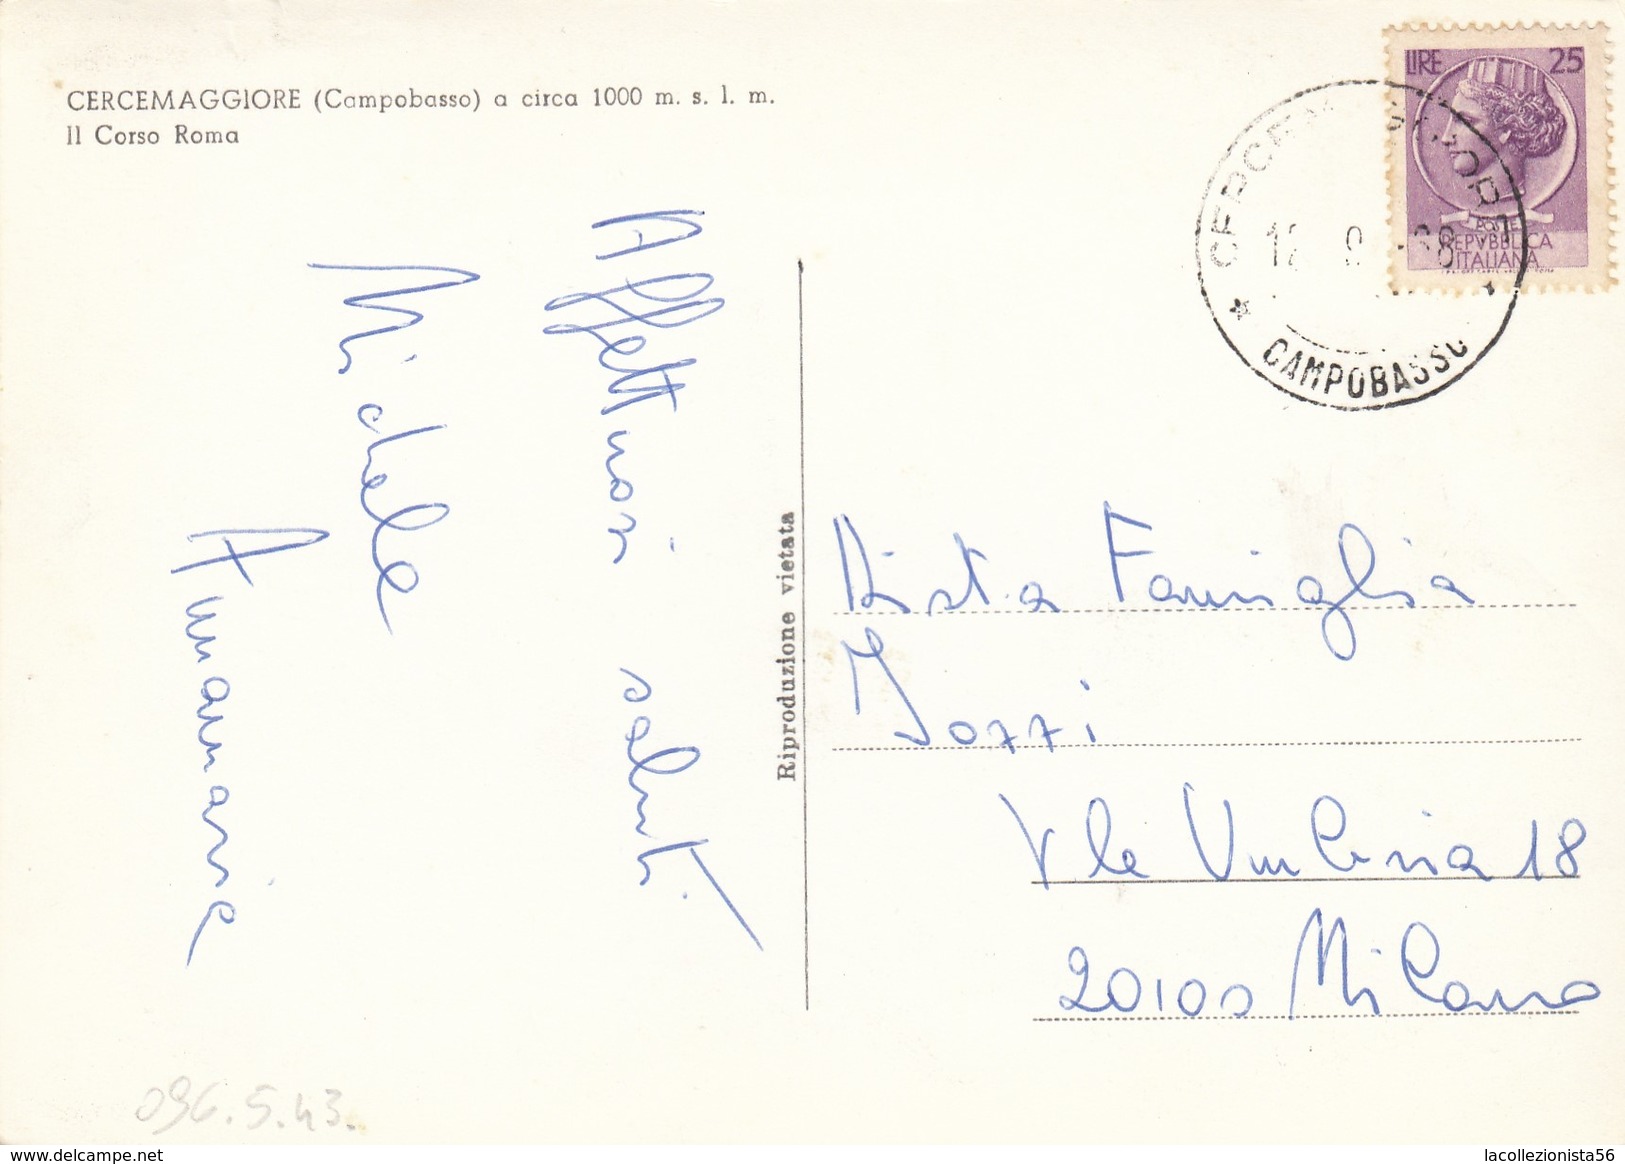 CERCEMAGGIORE (Campobasso) a circa 1000 m. s. l. m.
Il Corso Roma
LIRE 25
POSTE
REPVBBLICA
ITALIANA
CERCEMAGGIORE
CAMPOBASSO
Affettuosi saluti
Michele
Annamaria
Riproduzione vietata
Famiglia
Iozzi
Vle 18
20100 Milano
096.5.43.
www.delcampe.net
lacollezionista56